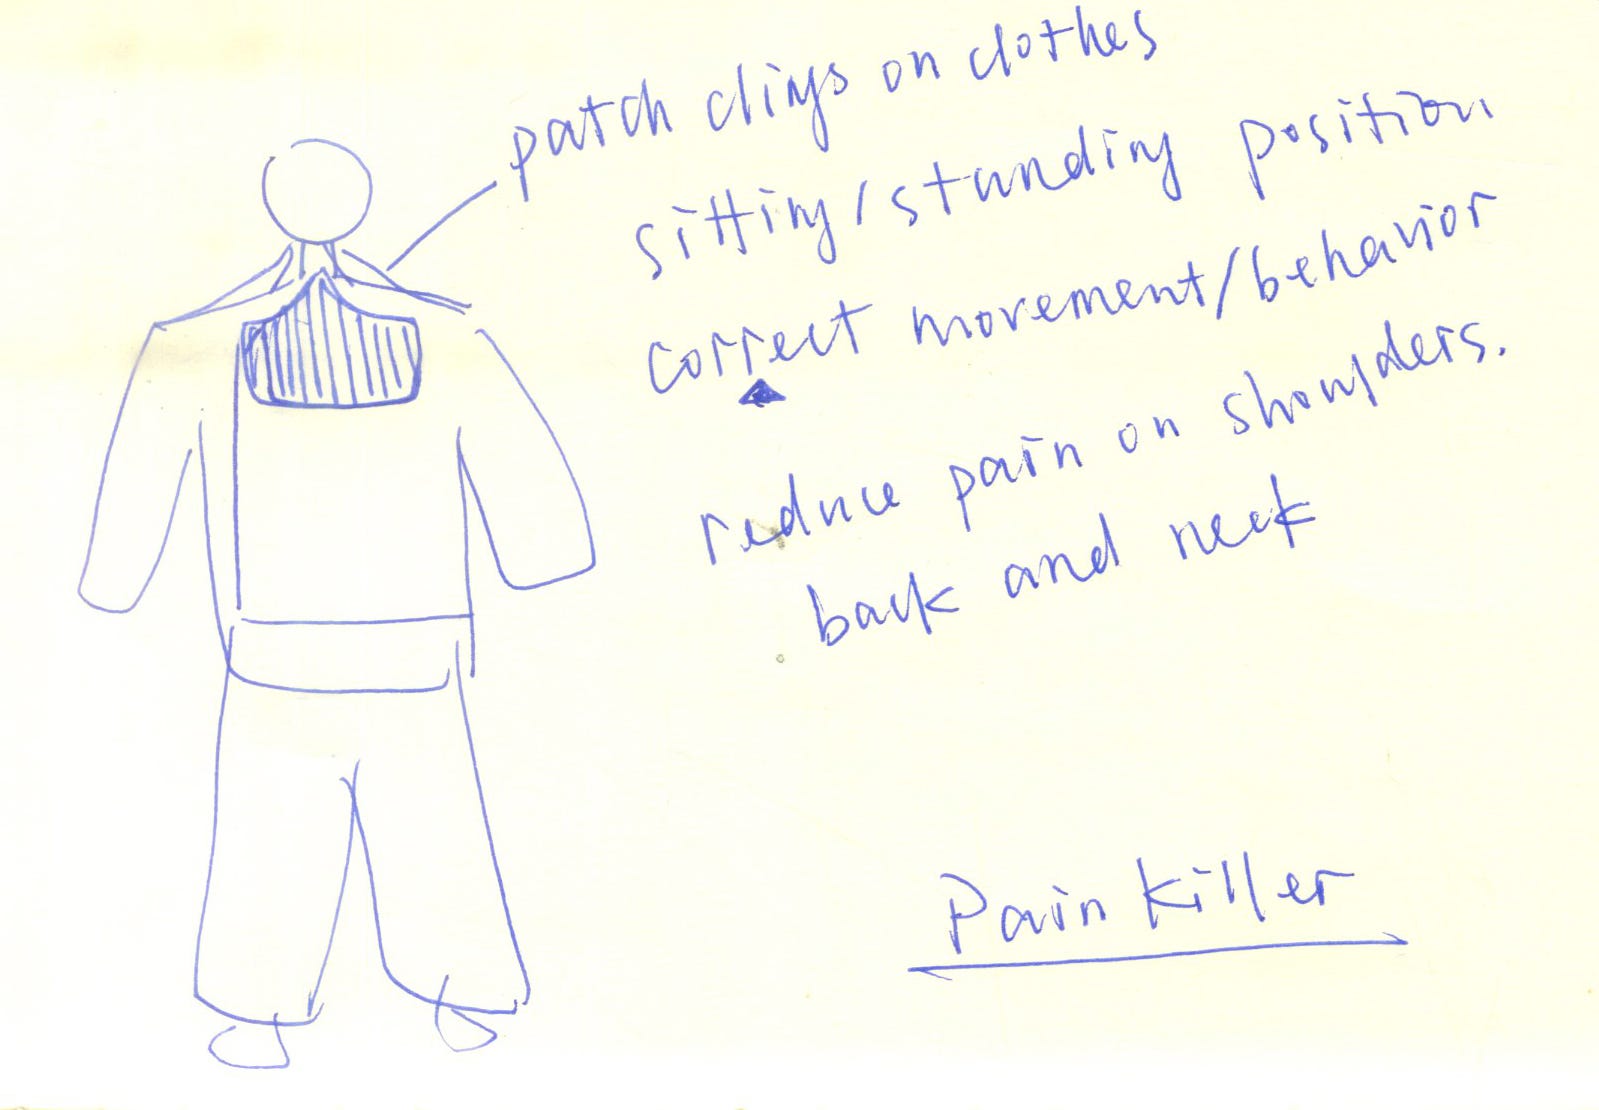 patch clings on clothes
sitting/standing position
correct movement/behavior
reduce pain on shoulders.
back and neck
Pain Killer